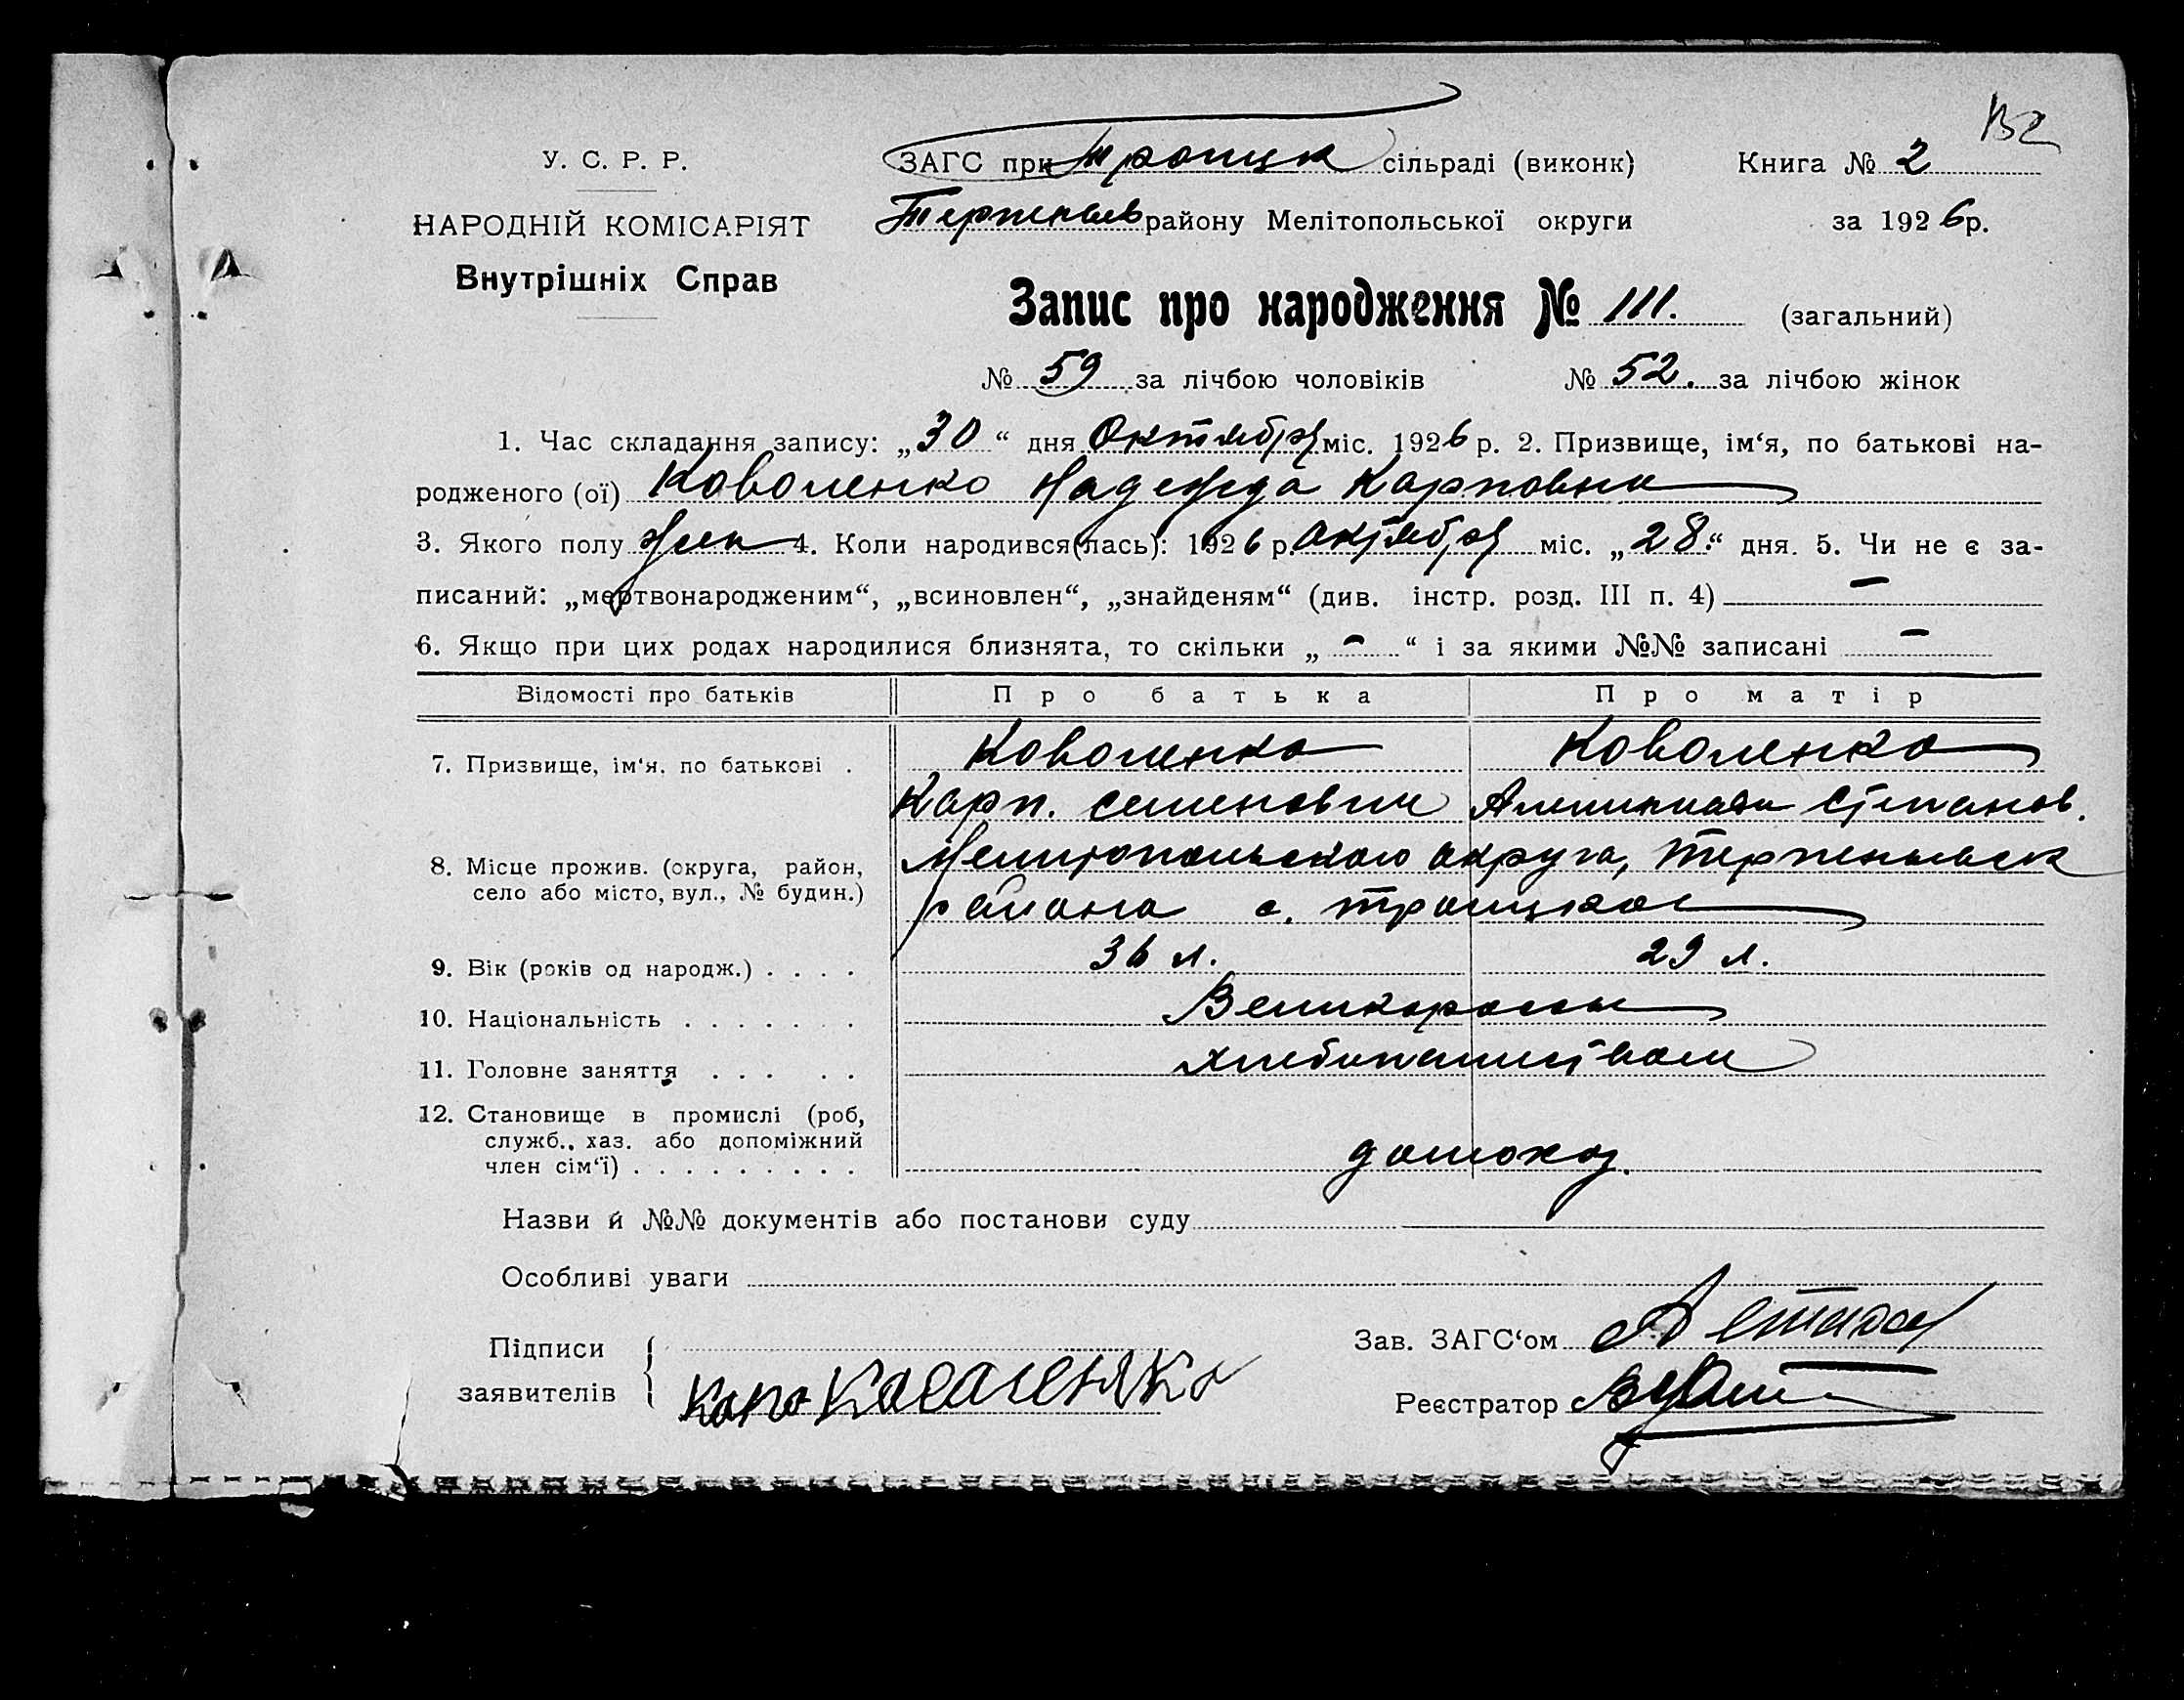 132
У. С. Р. Р.
ЗАГС при Троицк сільраді (виконк) Книга № 2
НАРОДНІЙ КОМІСАРІЯТ
Терпеньев району Мелітопольської округи за 1926 р.
Внутрішніх Справ
Запис про народження № 111. (загальний)
№ 59 за лічбою чоловіків № 52. за лічбою жінок
1. Час складання запису: „30“ дня Октября міс. 1926 р. 2. Призвище, ім‘я, по батькові на-
родженого (ої) Коваленко Надежда Карповна
3. Якого полу жен 4. Коли народився(лась): 1926 р. Октября міс. „28.“ дня. 5. Чи не є за-
писаний: „мертвонародженим“, „всиновлен“, „знайденям“ (див. інстр. розд. III п. 4) —
6. Якщо при цих родах народилися близнята, то скільки „ - “ і за якими №№ записані —
Відомості про батьків Про батька Про матір
7. Призвище, ім‘я, по батькові . Коваленко Коваленко
Карп. Семенович Степанов.
8. Місце прожив. (округа, район, Мелитопольского округа, Терпеньевск
село або місто, вул., № будин.) района с. Троицкое
9. Вік (років од народж.) . . . . 36 л. 29 л.
10. Національність . . . . . . . Великороссы
11. Головне заняття . . . . . хлебопашеством
12. Становище в промислі (роб,
служб., хаз. або допоміжний
член сім‘ї) . . . . . . . . . домохоз.
Назви й №№ документів або постанови суду
Особливі уваги
Підписи Зав. ЗАГС‘ом
заявителів Карп Коваленко Реєстратор